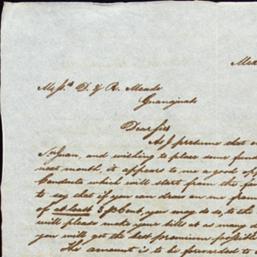 Mex
Mess.rs D. & R. Meade
Guanajuato
Dear Sir
As I presume that
Sn Juan, and wishing to place some fund
next month, it appears to me a good op
Conducta which will start from the
to say that if you can draw on me from
of at least you may do so, to the
will please make your bill at as many d
you will get the best premium possible
The amount is to be forwarded to